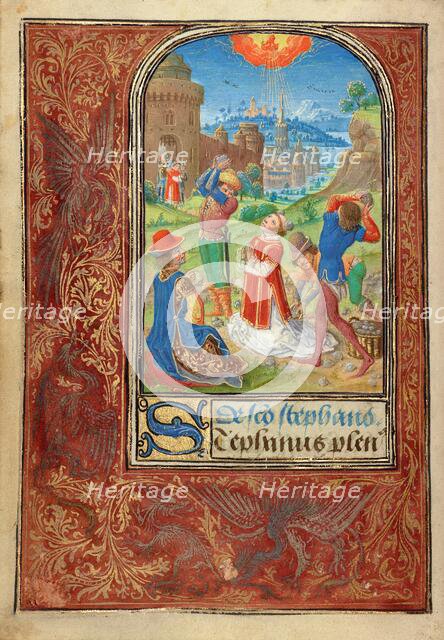 Heritage Heritage
Heritage Heritage Heritage
De sco stephano
Stephanus plen
Heritage Heritage